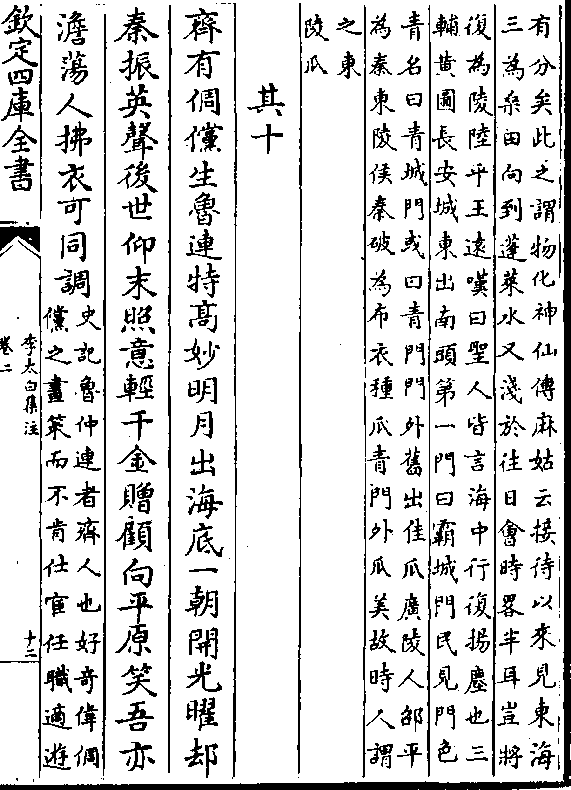 有分矣此之謂物化神仙傳麻姑云接待以來見東海
三為桑田向到蓬萊水又淺於往日會時畧半耳豈將
復為陵陸乎王遠嘆曰聖人皆言海中行復揚塵也三
輔黄圖長安城東出南頭第一門曰霸城門民見門色
青名曰青城門或曰青門門外舊出佳瓜廣陵人邵平
為秦東陵侯秦破為布衣種瓜青門外瓜美故時人謂
之東
陵瓜
其十
齊有倜儻生魯連特高妙明月出海底一朝開光曜却
秦振英聲後世仰末照意輕千金贈顧向平原笑吾亦
澹蕩人拂衣可同調
史記魯仲連者齊人也好奇偉倜
儻之畫策而不肯仕宦任職適遊
欽定四庫全書
李太白集注
卷二
十二